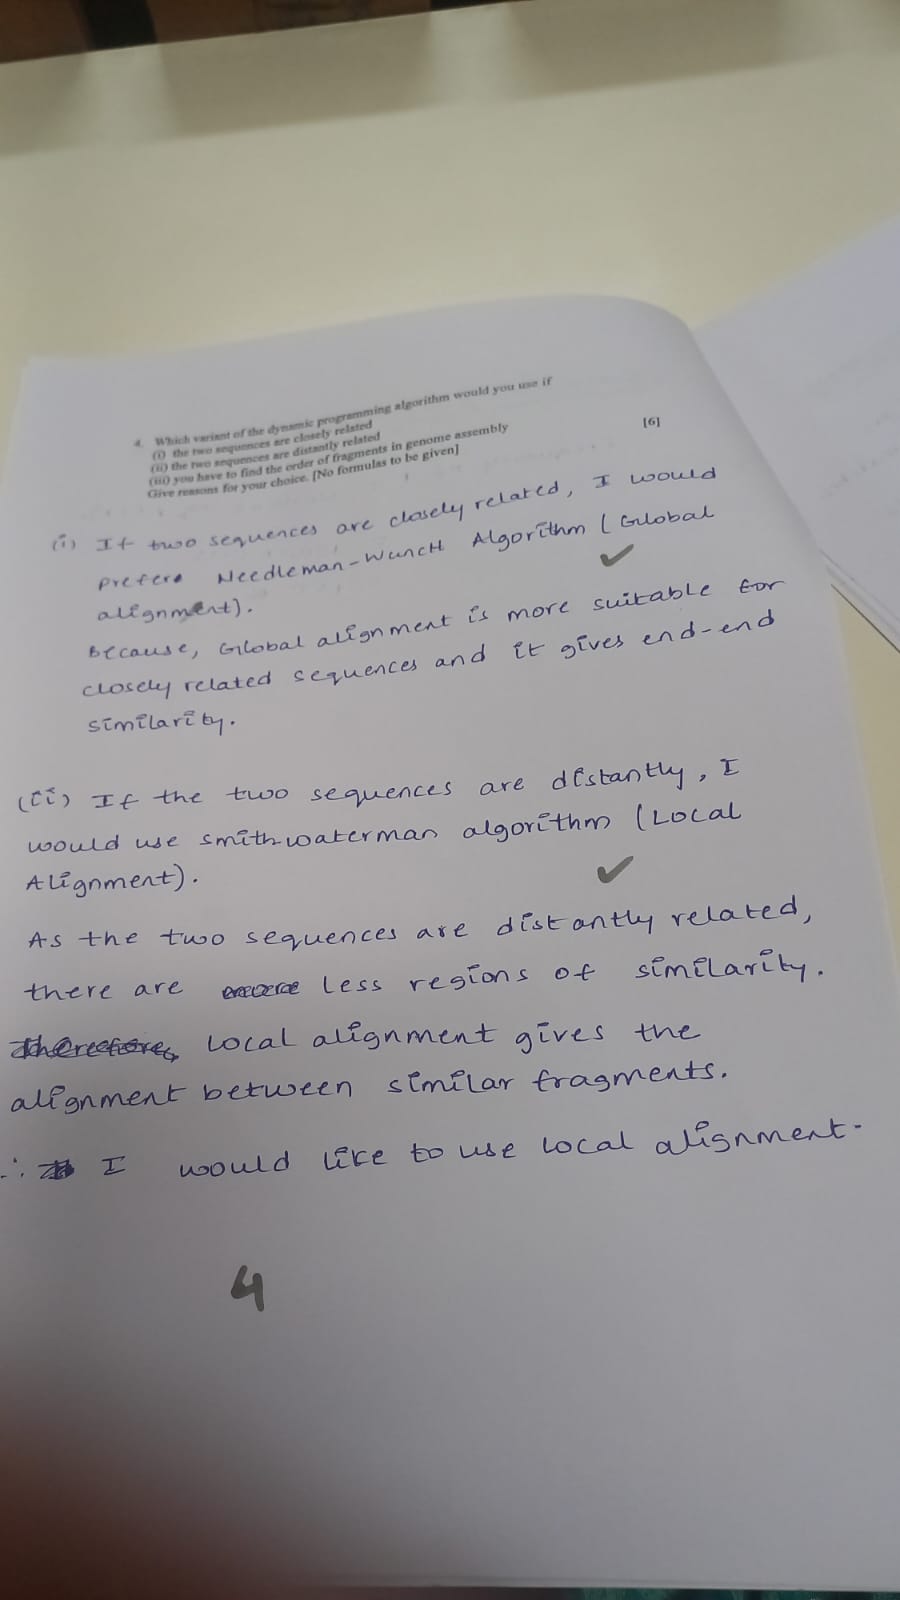 4. Which variant of the dynamic programming algorithm would you use if
(i) the two sequences are closely related
(ii) the two sequences are distantly related
(iii) you have to find the order of fragments in genome assembly
Give reasons for your choice. [No formulas to be given]
[6]
(i) If two sequences are closely related, I would
prefere Needleman-Wunch Algorithm (Global
alignment).
Because, Global alignment is more suitable for
closely related sequences and it gives end-end
similarity.
(ii) If the two sequences are distantly, I
would use smith-waterman algorithm (Local
Alignment).
As the two sequences are distantly related,
there are less regions of similarity.
Therefore, Local alignment gives the
alignment between similar fragments.
∴ I would like to use local alignment.
4